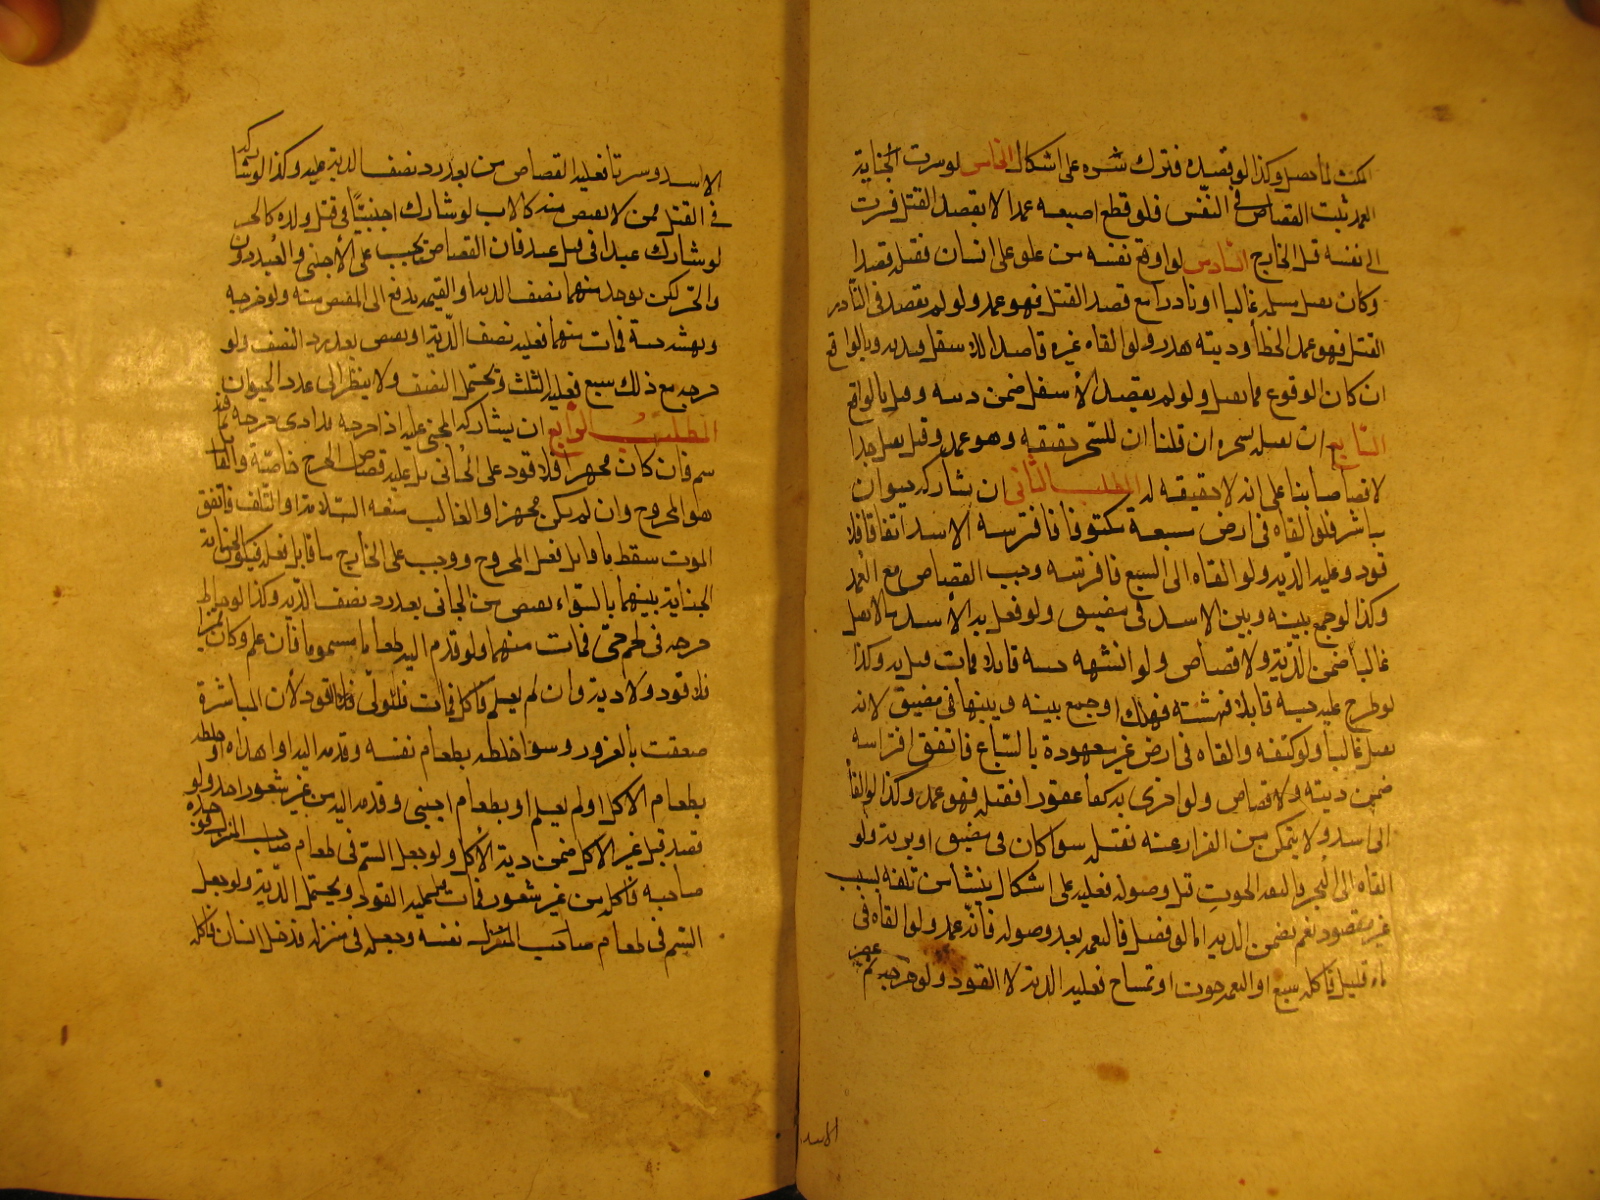 المكث لما حصل وكذا لو فصده فترك شده على اشكال الخامس لو سرت الجناية
العمد ثبت القصاص في النفس فلو قطع اصبعه عمدا لا بقصد القتل فسرت
الى نفسه قتل الجارح السادس لو اوقع نفسه من علو على انسان فقتله قصدا
وكان يقتل مثله غالبا او نادرا مع قصد القتل فهو عمد ولو لم يقصد في النادر
القتل فهو عمد الخطأ وديته هدر ولو القاه غيره قاصدا للاسفل قيد به وبالواقع
ان كان الوقوع مما يقتل ولو لم يقصد الأسفل ضمن ديته وقتل بالواقع
السابع ان يقتله بسحره ان قلنا ان للسحر حقيقة وهو عمد وقيل يقتل حدا
لا قصاصا بنا على انه لا حقيقة له المطلب الثاني ان يشاركه حيوان
مباشر فلو القاه في ارض مسبعة مكتوفا فافترسه الاسد اتفاقا فلا
قود وعليه الدية ولو القاه الى السبع فافترسه وجب القصاص مع العمد
وكذا لو جمع بينه وبين الاسد في مضيق ولو فعل به الأسد ما لا يقتل
غالبا ضمن الدية ولا قصاص ولو انهشه حية قاتلا فمات قتل به وكذا
لو طرح عليه حية قاتلا فنهشته فهلك او جمع بينه وبينها في مضيق لانه
يقتل غالبا ولو كتفه والقاه في ارض غير معهودة بالسباع فاتفق افتراسه
ضمن ديته ولا قصاص ولو اغرى به كلبا عقورا فقتله فهو عمد وكذا لو القاه
الى اسد ولا يتمكن من الفرار عنه فقتله سوا كان في مضيق او برية ولو
القاه الى البحر فالتقمه الحوت قبل وصوله فعليه على اشكال ينشأ من تلفه بسبب
غير مقصود نعم يضمن الدية اما لو فصل فالتقمه بعد وصوله فانه عمد ولو القاه في
ماء قليل فاكله سبع او التقمه حوت او تمساح فعليه الدية لا القود ولو جرحه ثم عضه
الاسد
الاسد وسرتا فعليه القصاص من بعد رد نصف الدية عليه وكذا لو شاركه
في القتل من لا يقتص منه كالاب لو شارك اجنبيا في قتل ولده كالحر
لو شارك عبدا في قتل عبد فان القصاص يجب على الأجنبي والعبد دون
والحر لكن يوخذ منهما نصف الدية او القيمة يدفع الى المقتص منه ولو جرحه
ونهشته حية فمات منهما فعليه نصف الدية او يقتص بعد رد النصف ولو
جرحه مع ذلك سبع فعليه الثلث ويحتمل النصف ولا ينظر الى عدد الحيوان
المطلب الرابع ان يشاركه المجني عليه اذا جرحه فداوى جرحه بما فيه
سم فان كان مجهزا فلا قود على الجاني بل عليه قصاص الجرح خاصة والقاتل
هو المجروح وان لم يكن مجهزا والغالب معه السلامة او التلف فاتفق
الموت سقط ما قابل فعل المجروح ووجب على الجارح ما قابل فعله فيكون الجناية
الجناية بينهما بالسواء يقتص من الجاني بعد رد نصف الدية وكذا لو خاط
جرحه في لحم حي فمات منهما ولو قدم اليه طعاما مسموما فان علم وكان مميزا
فلا قود ولا دية وان لم يعلم فاكل فمات فللولي القود لأن المباشرة
ضعفت بالغرور وسوا خلطه بطعام نفسه وقدمه اليه او اهداه او خلطه
بطعام الاكل او لم يعلم او بطعام اجنبي وقدمه اليه من غير شعور احد ولو
قصد قتل غير الاكل ضمن دية الاكل ولو جعل السم في طعام صاحب المنزل فوجده
صاحبه فاكله من غير شعور فمات فعليه القود ويحتمل الدية ولو جعل
السم في طعام صاحب المنزل نفسه وجعله في منزله فدخل انسان فاكله